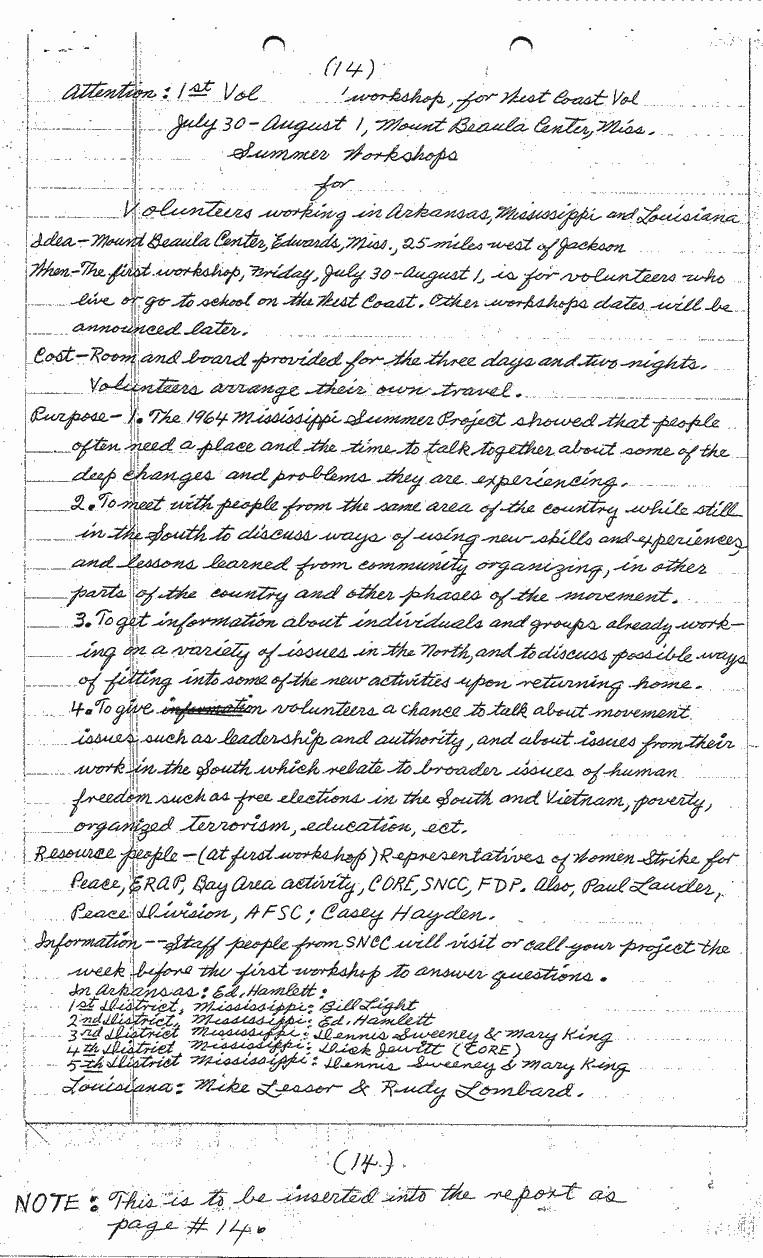 (14)
Attention: 1st Vol workshop, for West Coast Vol
July 30-August 1, Mount Beaula Center, Miss.
Summer Workshops
for
Volunteers working in Arkansas, Mississippi and Louisiana
Idea-Mount Beaula Center, Edwards, Miss., 25 miles west of Jackson
When-The first workshop, Friday, July 30-August 1, is for volunteers who
live or go to school on the West Coast. Other workshops dates will be
announced later.
Cost-Room and board provided for the three days and two nights.
Volunteers arrange their own travel.
Purpose-1. The 1964 Mississippi Summer Project showed that people
often need a place and the time to talk together about some of the
deep changes and problems they are experiencing.
2. To meet with people from the same area of the country while still
in the South to discuss ways of using new skills and experiences,
and lessons learned from community organizing, in other
parts of the country and other phases of the movement.
3. To get information about individuals and groups already work-
ing on a variety of issues in the North, and to discuss possible ways
of fitting into some of the new activities upon returning home.
4. To give information volunteers a chance to talk about movement
issues such as leadership and authority, and about issues from their
work in the South which relate to broader issues of human
freedom such as free elections in the South and Vietnam, poverty,
organized terrorism, education, ect.
Resource people-(at first workshop) Representatives of Women Strike for
Peace, ERAP, Bay Area activity, CORE, SNCC, FDP. Also, Paul Lauder,
Peace Division, AFSC; Casey Hayden.
Information--Staff people from SNCC will visit or call your project the
week before the first workshop to answer questions.
In Arkansas: Ed. Hamlett:
1st District, Mississippi: Bill Light
2nd District Mississippi: Ed. Hamlett
3rd District Mississippi: Dennis Sweeney & Mary King
4th District Mississippi: Dick Jewitt (CORE)
5th District Mississippi: Dennis Sweeney & Mary King
Louisiana: Mike Lessor & Rudy Lombard.
(14).
NOTE: This is to be inserted into the report as
page # 14.